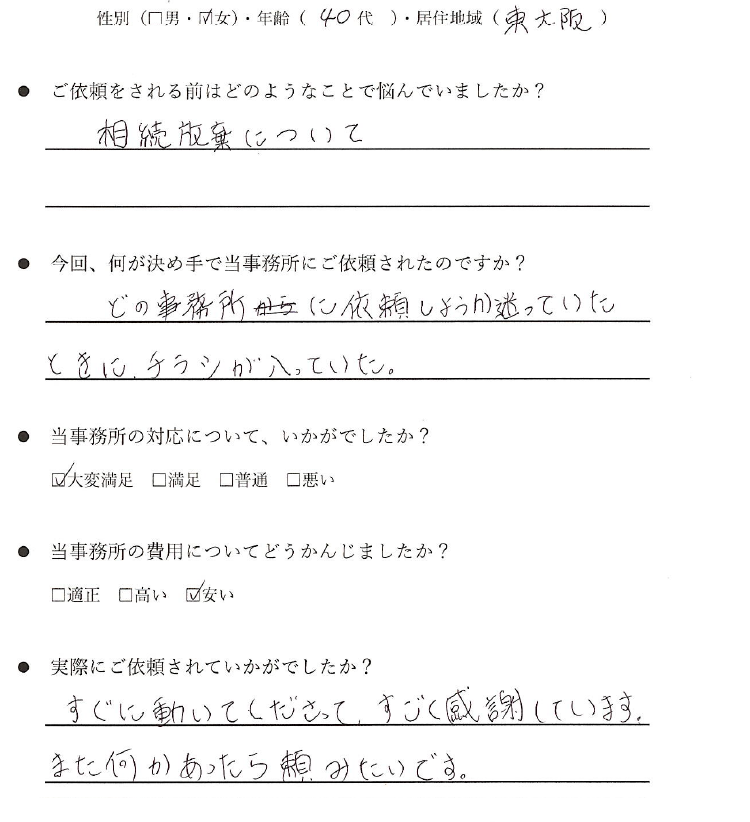 性別（□男・☑女）・年齢（ 40代 ）・居住地域（東大阪）
● ご依頼をされる前はどのようなことで悩んでいましたか？
相続放棄について
● 今回、何が決め手で当事務所にご依頼されたのですか？
どの事務所に依頼しようか迷っていた
ときに、チラシが入っていた。
● 当事務所の対応について、いかがでしたか？
☑大変満足 □満足 □普通 □悪い
● 当事務所の費用についてどうかんじましたか？
□適正 □高い ☑安い
● 実際にご依頼されていかがでしたか？
すぐに動いてくださって、すごく感謝しています。
また何かあったら頼みたいです。